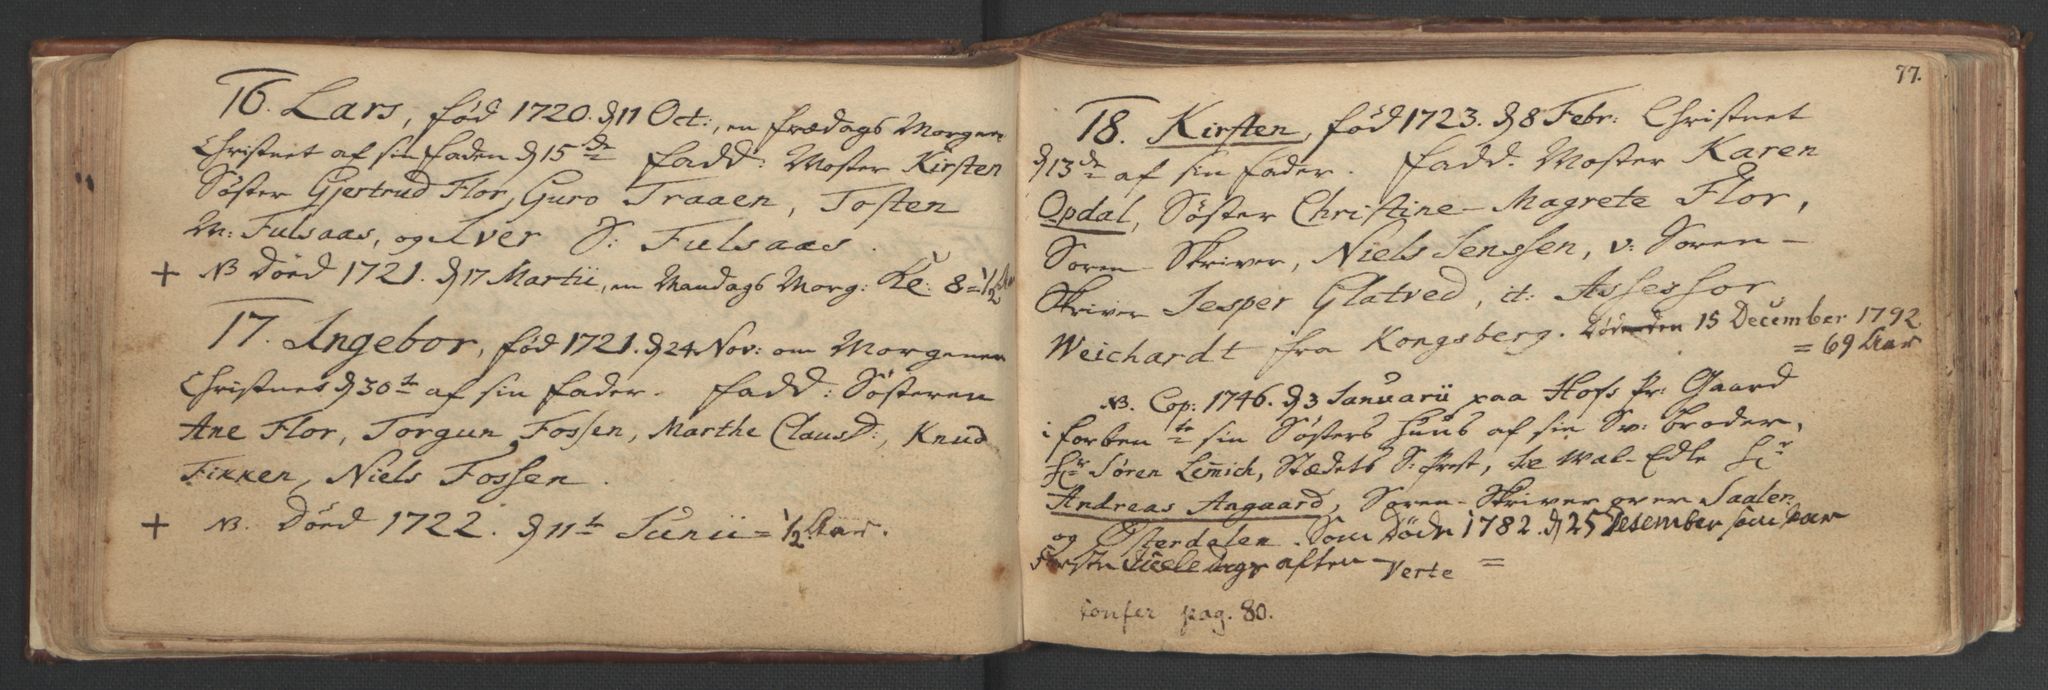 16. Lars, född 1720. d 11 Oct:, en Fredags Morgen
Christnet af sin Fader d 15de Fadd: Moster Kirsten
Søster Gjertrud Flor, Guro Traaen, Tosten
M: Fulsaas, og Iver S: Fulsaas.
+ NB Døed 1721. d 17 Martii, en Mandags Morg: Kl: 8 = 1/2 Aar
17. Ingebor, fød 1721. d 24 Nov: om Morgenen
Christnes d 30te af sin Fader. Fadd: Søsteren
Ane Flor, Torgun Fossen, Marthe ClausD:, Knud
Fikken, Niels Fossen.
+ NB. Døed 1722. d 11te Junii = 1/2 Aar.
77.
18. Kirsten, fød 1723. d 8 Febr: Christnet
d 13de af sin Fader. Fadd: Moster Karen
Opdal, Søster Christine Magrete Flor,
Soren-Skriver, Niels Jenssen, v: Soren-
Skriver Jesper Glatved, it: Assessor
Weichardt fra Kongsberg. Døde den 15 December 1792
= 69 Aar
NB. Cop: 1746. d 3 Januarii paa Hofs Pr: Gaard
i Forbente sin Søsters Huus af sin Sv: broder,
Hr Søren Lemich, Stædets S: Prest, de Wal-Edle Hr
Andreas Aagaard, Soren-Skriver over Saalen
og Østerdalen. Som Døde 1782. d 25 Desember som var
Første Juele dags aften
Verte =
Confer pag. 80.